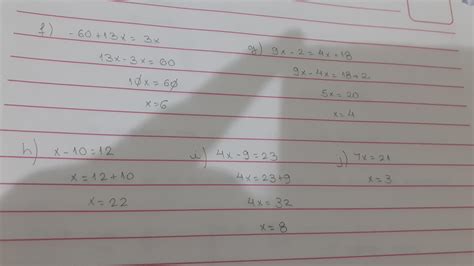 f) -60+13x=3x
13x-3x=60
10x=60
x=6
g) 9x-2=4x+18
9x-4x=18+2
5x=20
x=4
h) x-10=12
x=12+10
x=22
i) 4x-9=23
4x=23+9
4x=32
x=8
j) 7x=21
x=3